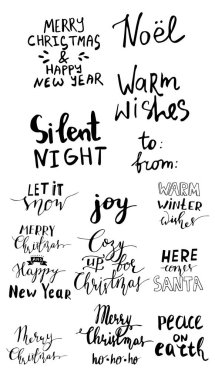 MERRY
CHRICTMAS
&
HAPPY
NEW YEAR
Noël
WARM
wishes
Silent
NIGHT
to:
from:
LET IT
snow
joy
WARM
WINTER
wishes
MERRY
Christmas
AND
Happy
New Year
Cozy
up for
Christmas
HERE
comes
SANTA
Merry
Christmas
Merry
Christmas
ho•ho•ho
peace
on
earth